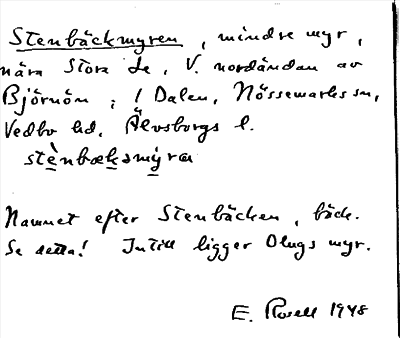 Stenbäckmyren, mindre myr,
nära Stora Le, V. nordändan av
Björnön, i Dalen, Nössemarks sn,
Vedbo hd, Älvsborgs l.
stènbæksmýra
Namnet efter Stenbäcken, bäck.
Se detta! Intill ligger Olugs myr.
E. Rosell 1948